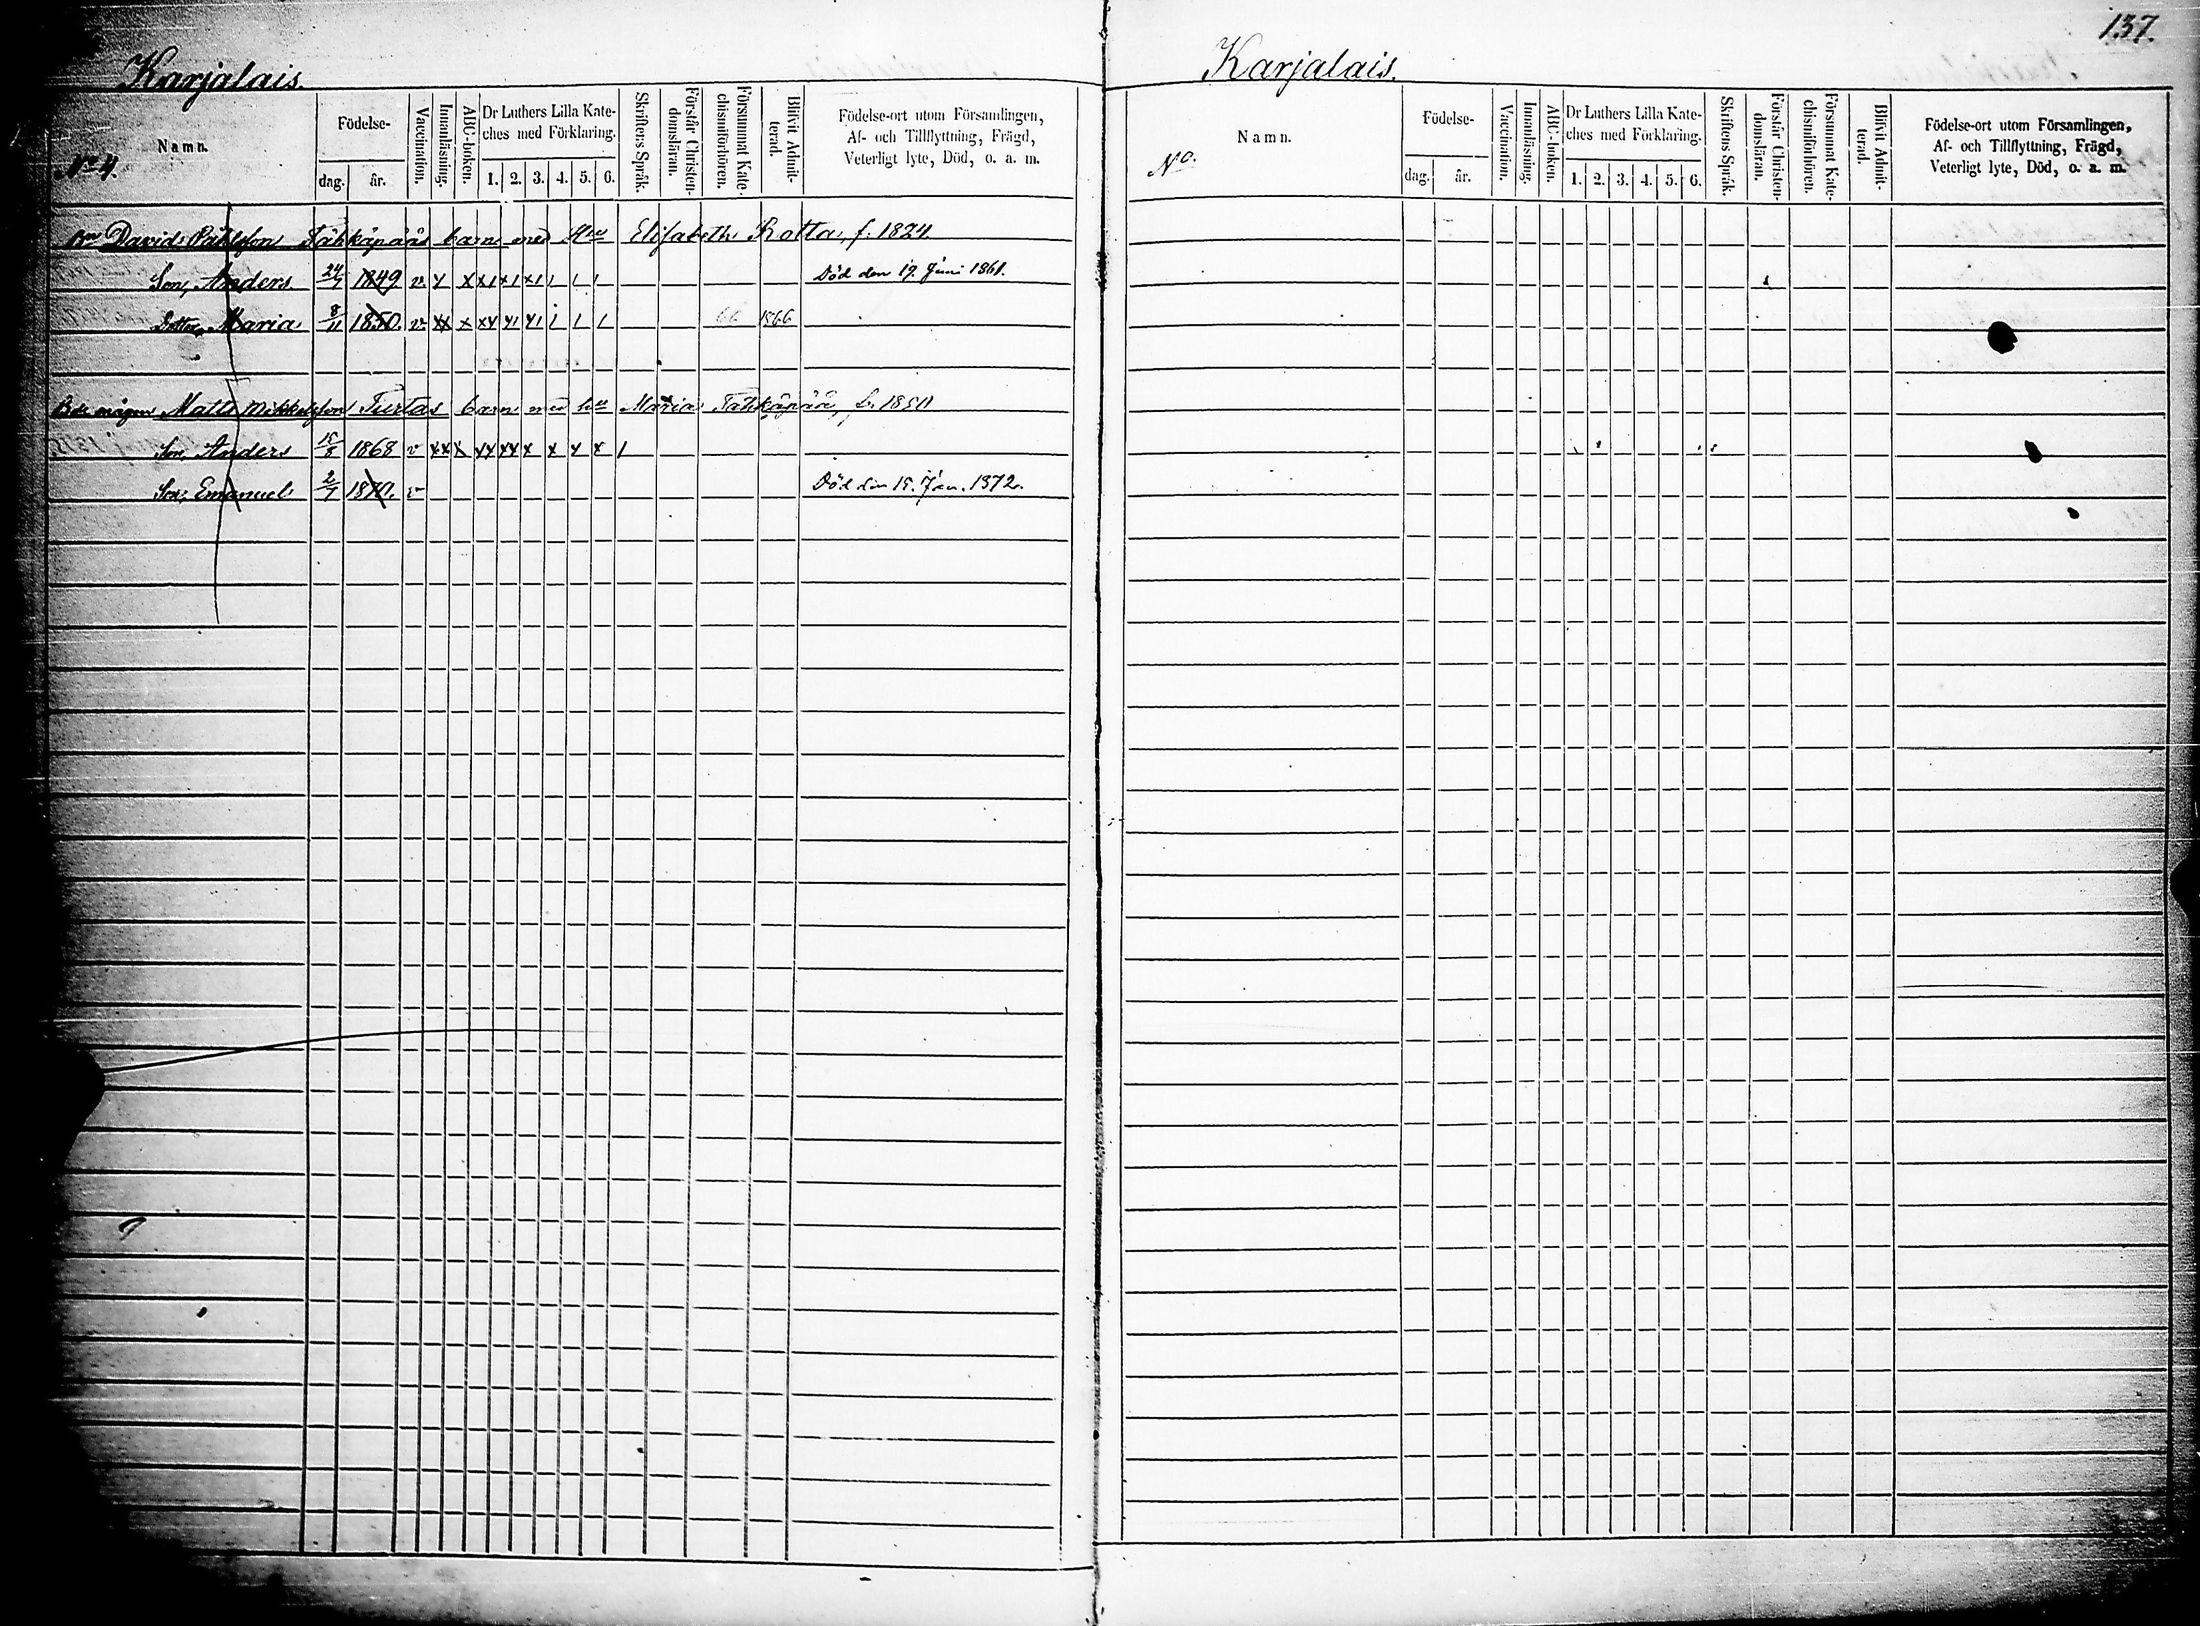 Karjalais.
No 4.
Namn.
Födelse-
dag.
år.
Vaccination.
Innanläsning.
ABC-boken.
Dr Luthers Lilla Kate-
ches med Förklaring.
1. 2. 3. 4. 5. 6.
Skriftens Språk.
Förstår Christen-
domsläran.
Försummat Kate-
chismiförhören.
Blifvit Admit-
terad.
Födelse-ort utom Församlingen,
Af- och Tillflyttning, Frägd,
Veterligt lyte, Död, o. a. m.
Bn David Påhlsson Tähkäpääs barn med Hu Elisabeth Rotta, f. 1824.
Son, Anders 24/7 1849 v x x x1 x1 x1 1 1 1 Död den 19. Juni 1861.
Dotter, Maria 8/11 1850. v xx x xx x1 x1 1 1 1 66 1866
Bds mågen Matts Mikkelsson Turtas barn med hu Maria Tähkäpää, f. 1850
Son, Anders 15/8 1868 v xx x xx xx x x x x 1
Son, Emanuel 2/7 1870. v Död den 15. Jan. 1872.
137.
Karjalais.
No.
Namn.
Födelse-
dag.
år.
Vaccination.
Innanläsning.
ABC-boken.
Dr Luthers Lilla Kate-
ches med Förklaring.
1. 2. 3. 4. 5. 6.
Skriftens Språk.
Förstår Christen-
domsläran.
Försummat Kate-
chismiförhören.
Blifvit Admit-
terad.
Födelse-ort utom Församlingen,
Af- och Tillflyttning, Frägd,
Veterligt lyte, Död, o. a. m.